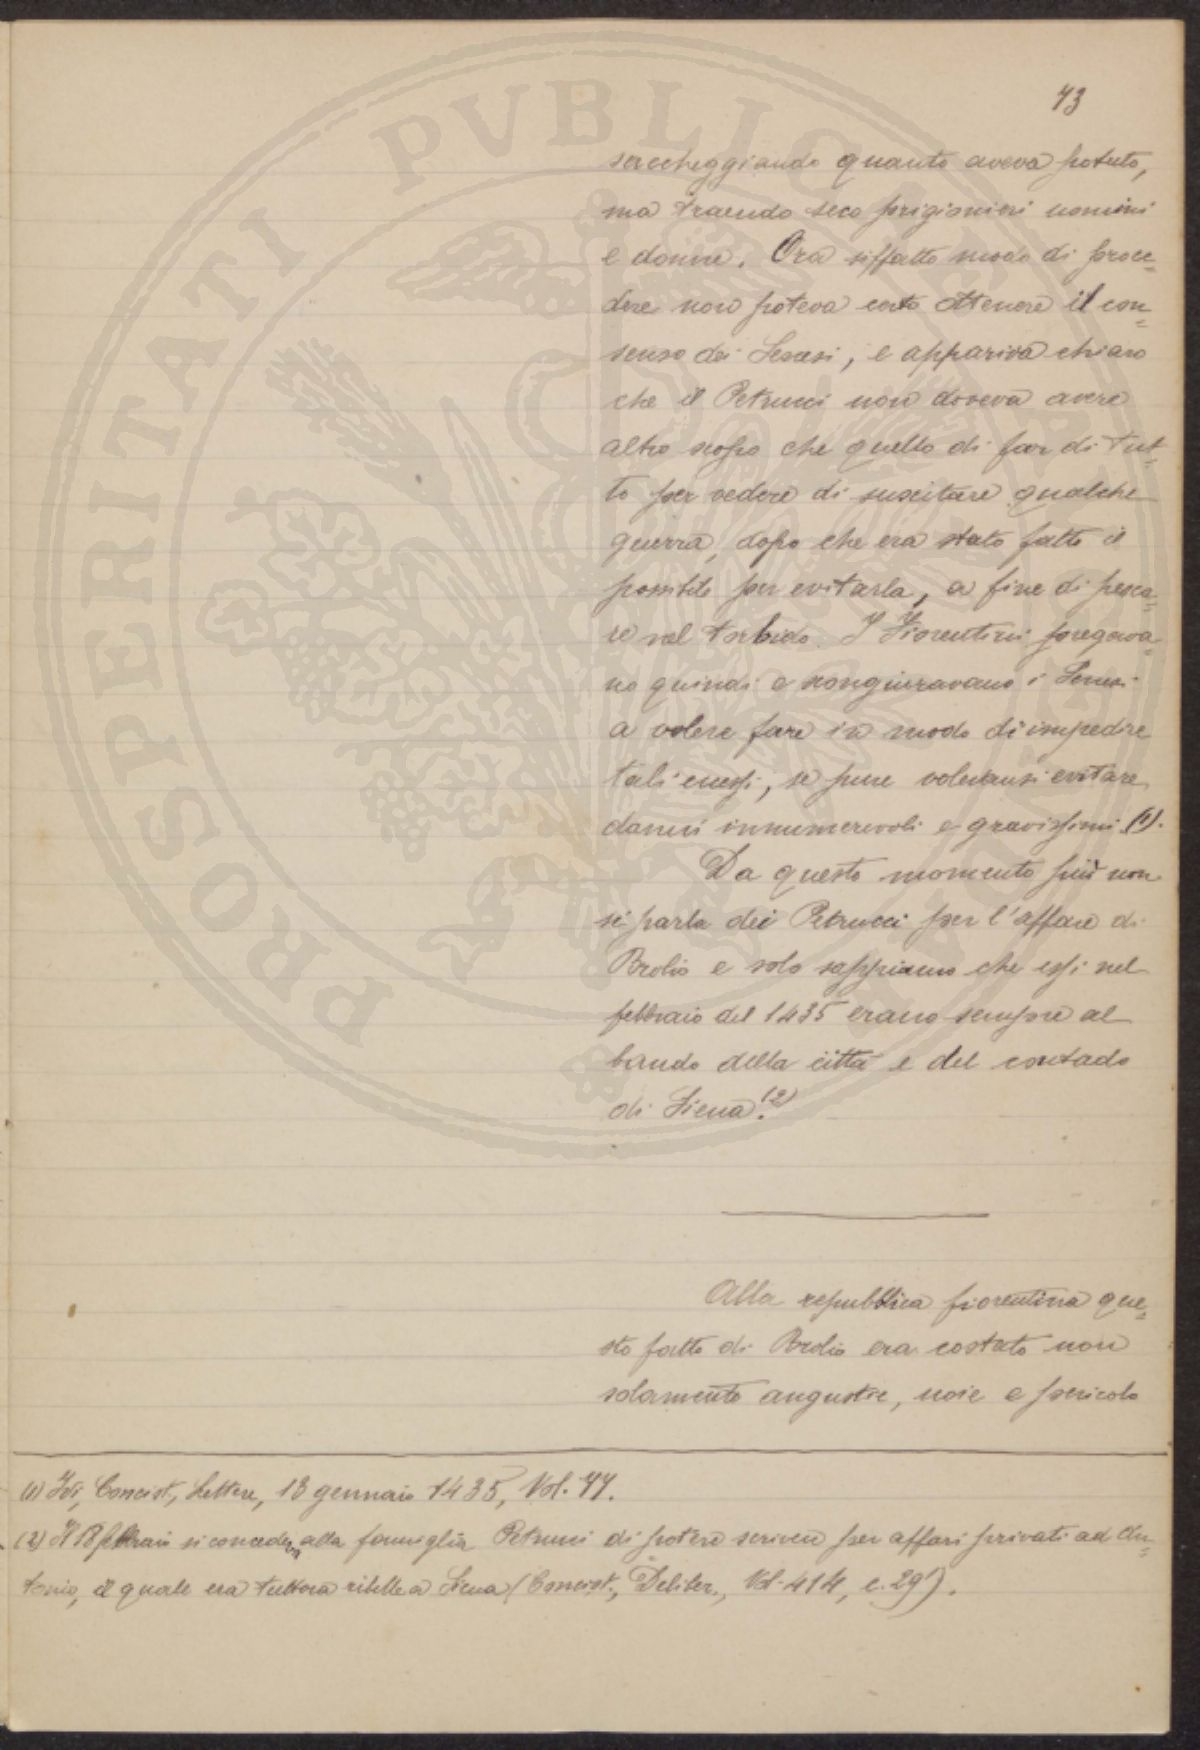 73
saccheggiando quanto aveva potuto,
ma traendo seco prigionieri uomini
e donne. Ora siffatto modo di proce=
dere non poteva certo ottenere il con=
senso dei Senesi, e appariva chiaro
che il Petrucci non doveva avere
altro scopo che quello di far di tut=
to per vedere di suscitare qualche
guerra, dopo che era stato fatto il
possibile per evitarla, a fine di pesca=
re nel torbido. I Fiorentini pregava=
no quindi e scongiuravano i Senesi
a volere fare in modo di impedire
tali eccessi, se pure volevansi evitare
danni innumerevoli e gravissimi (1).
Da questo momento più non
si parla dei Petrucci per l'affare di
Brolio e solo sappiamo che essi nel
febbraio del 1435 erano sempre al
bando della città e del contado
di Siena.(2)
Alla repubblica fiorentina que=
sto fatto di Brolio era costato non
solamente angustie, noie e pericolo
(1) Ivi, Concist., Lettere, 13 gennaio 1435, Vol. 77.
(2) Il febbraio si concedeva alla famiglia Petrucci di potere scrivere per affari privati ad An=
tonio, il quale era tuttora ribelle a Siena (Concist., Deliber., Vol. 414, c. 29').
PROSPERITATI PVBLICAE